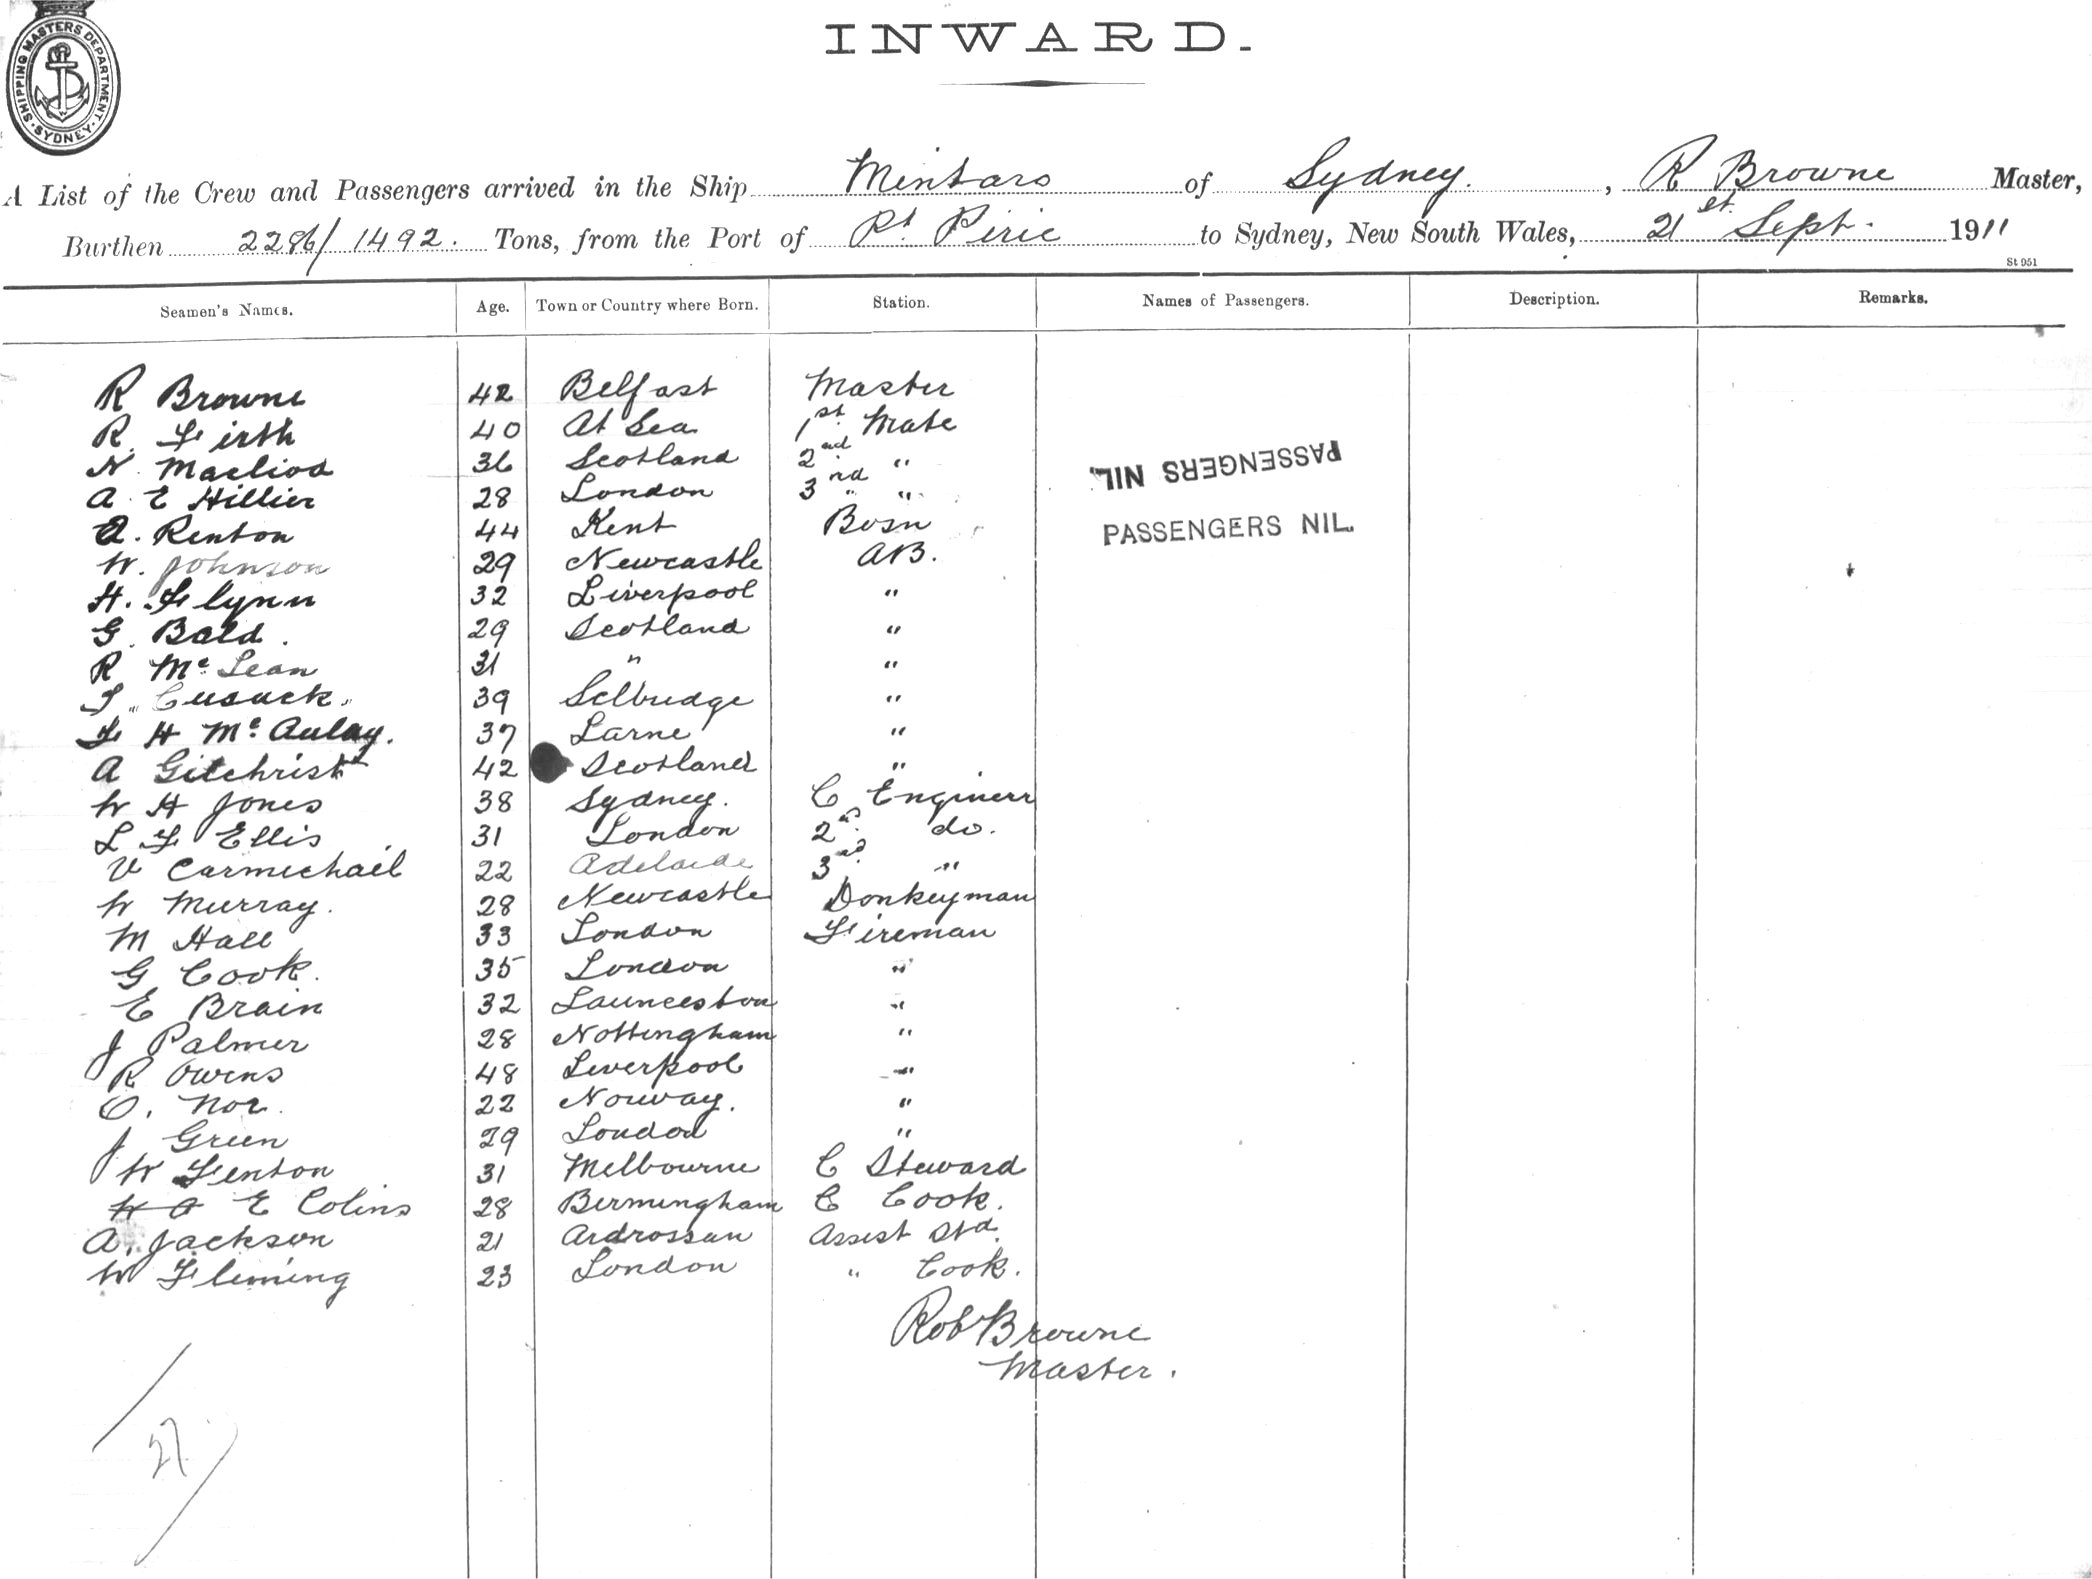 SHIPPING MASTERS DEPARTMENT. SYDNEY.
INWARD.
A List of the Crew and Passengers arrived in the Ship Mintaro of Sydney. , R Browne Master,
Burthen 2286/1492. Tons, from the Port of Pt. Pirie to Sydney, New South Wales, 21st Sept. 1911
St 051
Seamen's Names. Age. Town or Country where Born. Station. Names of Passengers. Description. Remarks.
R Browne 42 Belfast Master
R. Firth 40 At Sea 1st Mate
N. Macleod 36 Scotland 2nd "
A. E Hillier 28 London 3rd "
PASSENGERS NIL.
A. Renton 44 Kent Bosn
PASSENGERS NIL.
W. Johnson 29 Newcastle AB.
H. Flynn 32 Liverpool "
G. Bald. 29 Scotland "
R McLean 31 " "
T. Cusack. 39 Selbridge "
F H McAulay. 37 Larne "
A Gilchrist 42 Scotland "
W H Jones 38 Sydney. C Engineer
L F Ellis 31 London 2nd do.
V Carmichael 22 Adelaide 3rd "
W Murray. 28 Newcastle Donkeyman
M Hall 33 London Fireman
G Cook. 35 London "
E Brain 32 Launceston "
J Palmer 28 Nottingham "
R Owens 48 Liverpool "
O. Nor. 22 Norway. "
J Green 29 London "
W Fenton 31 Melbourne C Steward
E Colins 28 Birmingham C Cook.
A. Jackson 21 Ardrossan Assist Std.
W Fleming 23 London " Cook.
Rob Browne
Master.
27